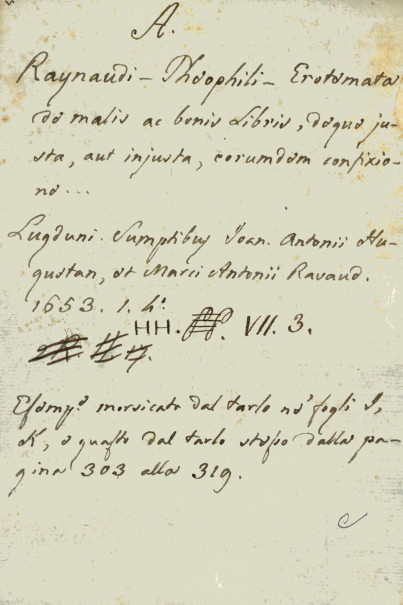 A.
Raynaudi - Theophili - Erotemata
de malis ac bonis Libris, deque ju-
sta, aut injusta, eorumdem confixio-
ne...
Lugduni. Sumptibus Ioan. Antonii Hu-
gustan, et Marci Antonii Ravaud.
1653. 1. 4°.
HH. VII. 3.
Esemp.° morsicato dal tarlo ne' fogli I,
K, e guasto dal tarlo stesso dalla pa-
gina 303 alla 319.